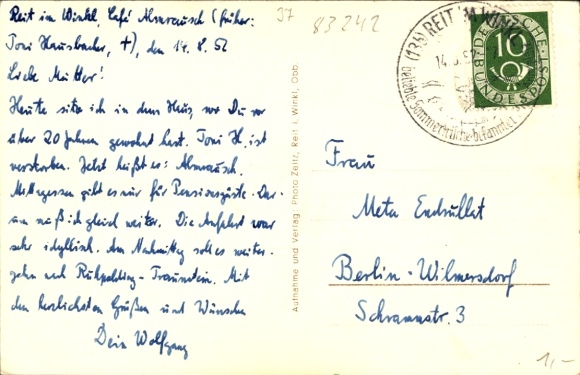 Reit im Winkl, Café Almrausch (früher:
Toni Hausbacher, †), den 14. 8. 52
Liebe Mutter!
Heute sitze ich in dem Haus, wo Du vor
über 20 Jahren gewohnt hast. Toni H. ist
verstorben. Jetzt heißt es: Almrausch.
Mittagessen gibt es nur für Pensionsgäste. Dar-
um muß ich gleich weiter. Die Anfahrt war
sehr idyllisch. Am Nachmittag soll es weiter-
gehn nach Ruhpolding - Traunstein. Mit
den herzlichsten Grüßen und Wünschen
Dein Wolfgang
37
83242
Aufnahme und Verlag: Photo Zeitz, Reit i. Winkl, Obb.
(13b) REIT IM WINKL
14. 8. 52
beliebte Sommerfrische bekannter
DEUTSCHE BUNDESPOST
10
Frau
Meta Endrullat
Berlin-Wilmersdorf
Schrammstr. 3
1,-